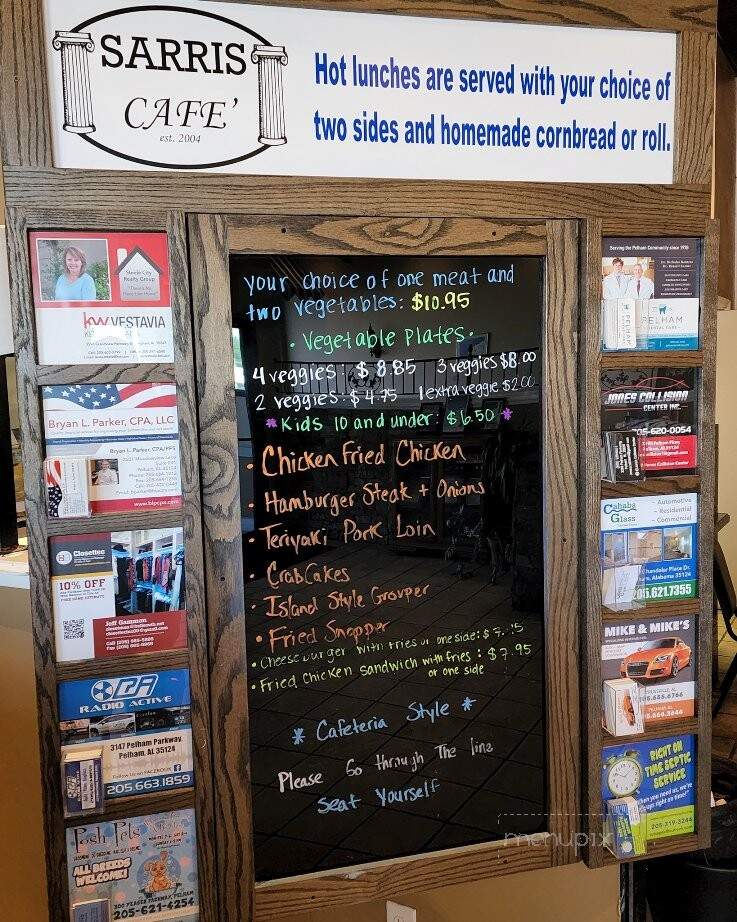 SARRIS
CAFE'
est. 2004
Hot lunches are served with your choice of
two sides and homemade cornbread or roll.
your choice of one meat and
two vegetables: $10.95
• Vegetable Plates •
4 veggies: $8.85 3 veggies $8.00
2 veggies: $4.75 1 extra veggie $2.00
* Kids 10 and under: $6.50 *
• Chicken Fried Chicken
• Hamburger Steak + Onions
• Teriyaki Pork Loin
• Crab Cakes
• Island Style Grouper
• Fried Snapper
• Cheeseburger with fries or one side: $
• Fried Chicken Sandwich with fries : $7.95
or one side
* Cafeteria Style *
Please Go through The line
Seat Yourself
Realty Group
kw VESTAVIA
Bryan L. Parker, CPA, LLC
Bryan L. Parker, CPA/PFS
Closettec
10% OFF
Jeff Gammon
RADIO ACTIVE
3147 Pelham Parkway
Pelham, AL 35124
Follow Us on FACEBOOK
205.663.1859
Posh Pets
ALL BREEDS
WELCOME!
205-621-4254
Serving the Pelham Community since 1975
PELHAM
DENTAL CARE
JONES COLLISION
CENTER INC.
05-620-0054
Cahaba
Glass
Automotive
- Residential
- Commercial
Chandalar Place Dr.
Alabama 35124
05.621.7355
MIKE & MIKE'S
RIGHT ON
TIME SEPTIC
SERVICE
205-319-3244
menupix